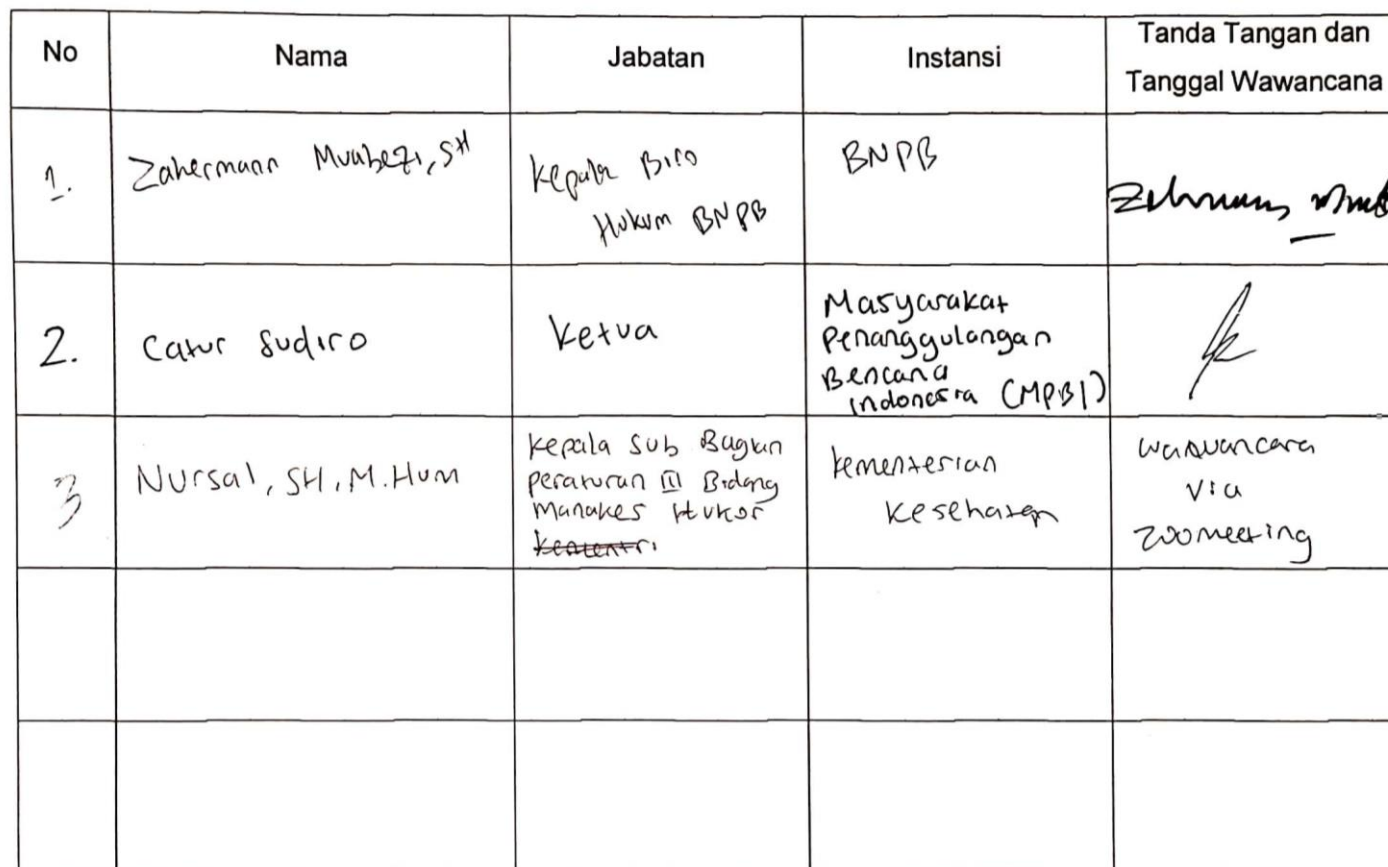 No
Nama
Jabatan
Instansi
Tanda Tangan dan
Tanggal Wawancana
1.
Zahermann Muabezi, SH
Kepala Biro
Hukum BNPB
BNPB
2.
Catur Sudiro
Ketua
Masyarakat
Penanggulangan
Bencana
Indonesia (MPBI)
3
Nursal, SH, M.Hum
Kepala Sub Bagian
peraturan III Bidang
Manakes Hukor
Kementerian
Kesehatan
wawancara
via
zoomeeting